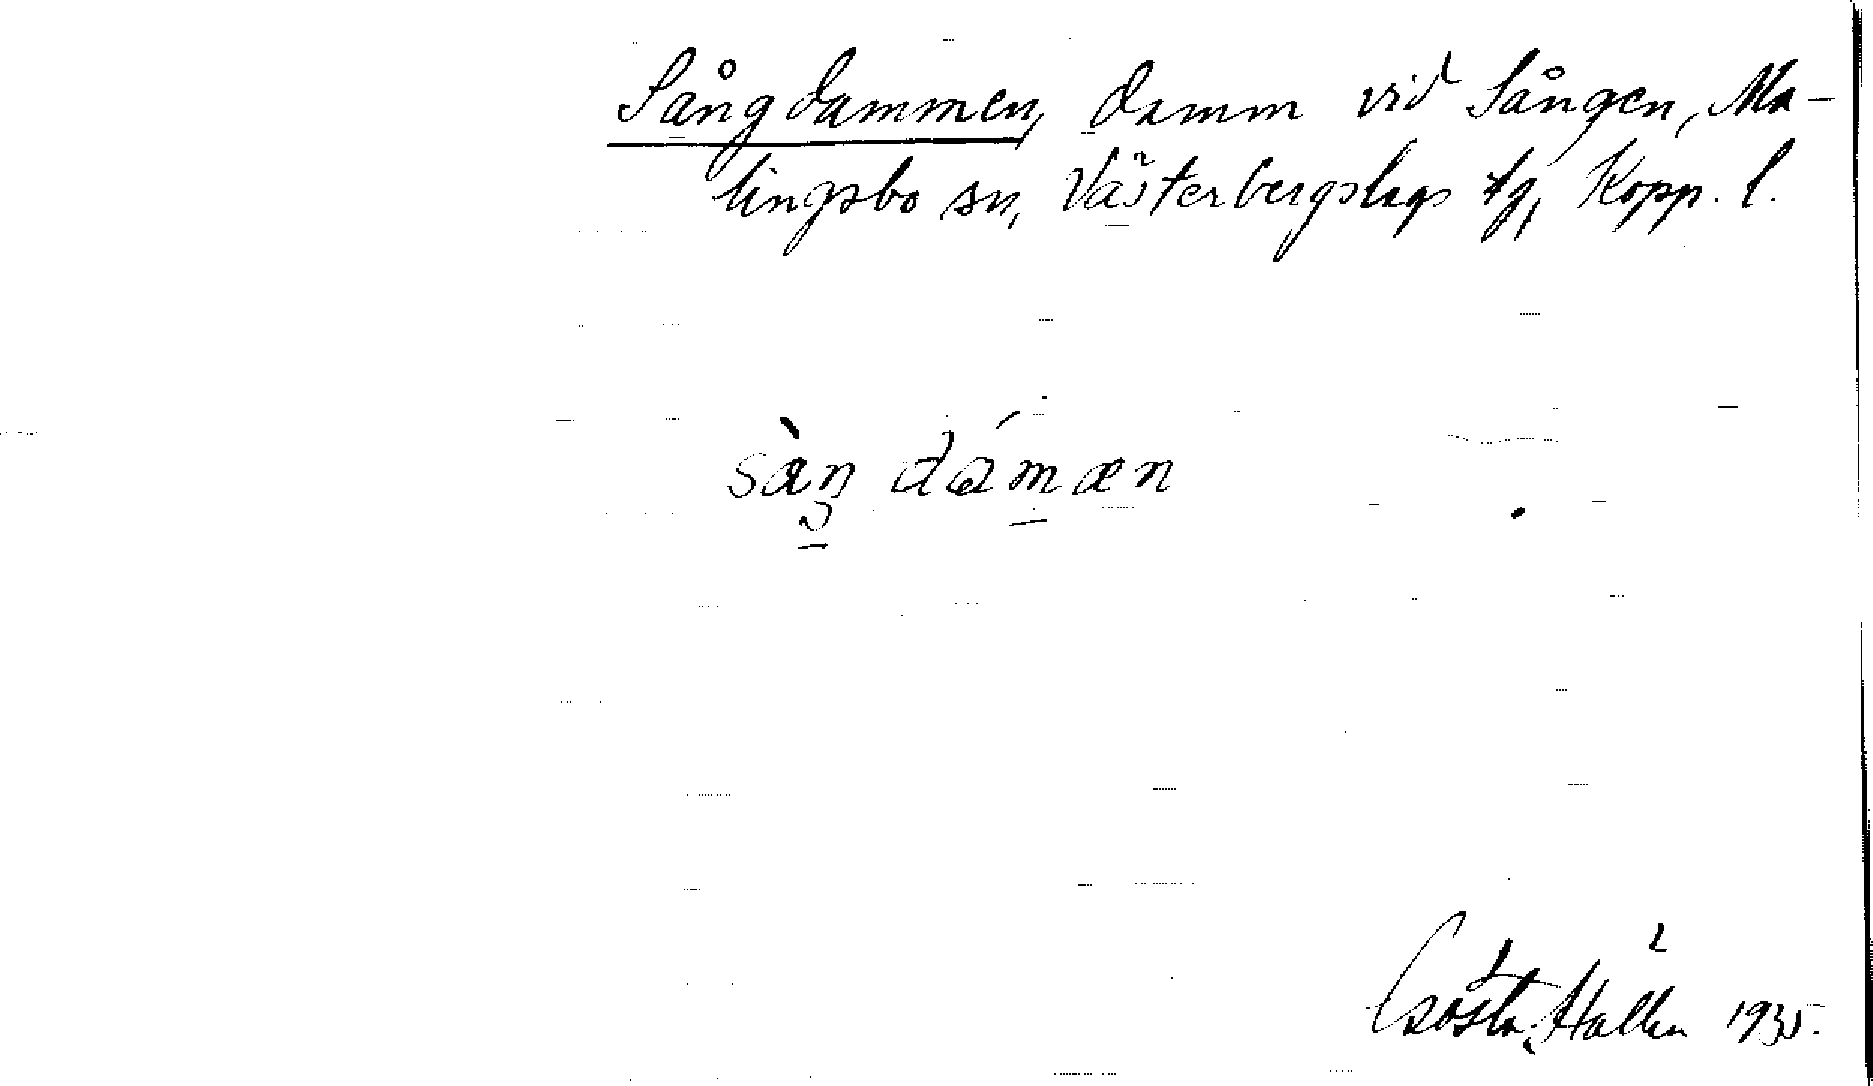 Sångdammen, damm vid Sången, Ma-
lingsbo sn, Västerbergslags tg, Kopp. l.
sàŋ dámæn
Gösta Hallén 1935.